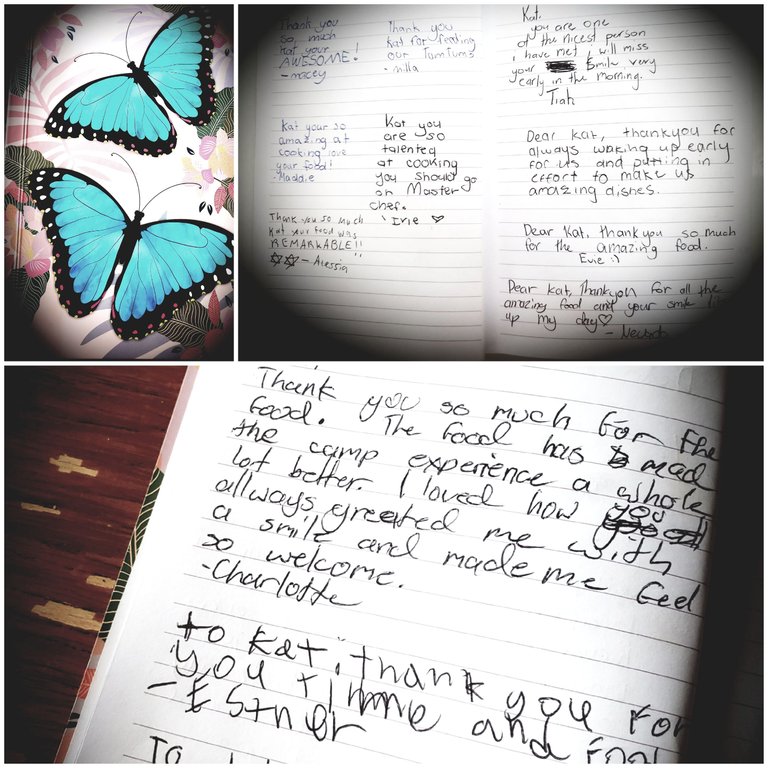 Thank you
so much
Kat your
AWESOME!
- macey
Thank you
Kat for feeding
our TumTums
- milla
Kat your so
amazing at
cooking love
your food!
- Maddie
Kat you
are so
talented
at cooking
you should go
on Master
chef.
Irie
Thank you so much
Kat your food was
REMARKABLE!!
- Alessia
Kat,
you are one
of the nicest person
i have met, i will miss
your smile very
early in the morning.
Tiah
Dear Kat, thankyou for
always waking up early
for us and putting in
effort to make us
amazing dishes.
Dear Kat, thankyou so much
for the amazing food.
Evie :)
Dear Kat, Thankyou for all the
amazing food and your smile
up my day
Thank you so much for the
food. The food has mad
the camp experience a whole
lot better. I loved how you
allways greated me with
a smile and made me feel
so welcome.
-Charlotte
to Kat, thank you for
you time and foo
- Esther
To